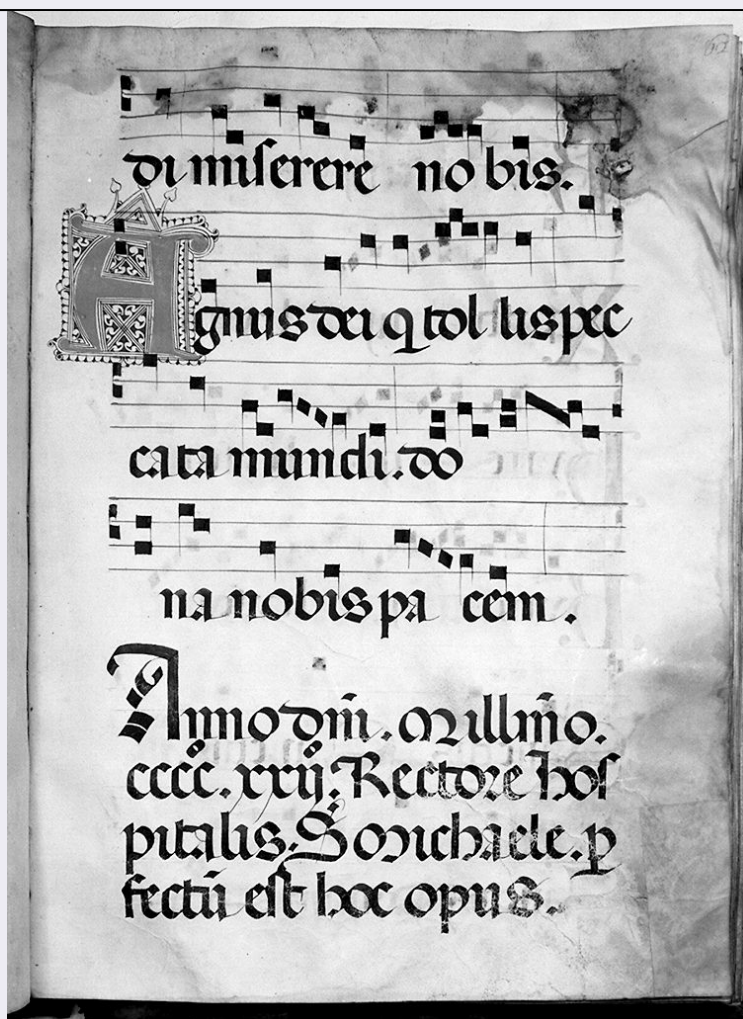 di miserere no bis.
Agnus dei q tol lis pec
cata mundi. do
na nobis pa cem.
Anno dm̄. Millm̄o.
cccc. xxij. Rectore hos
pitalis. S Michaele. p
fectū est hoc opus.